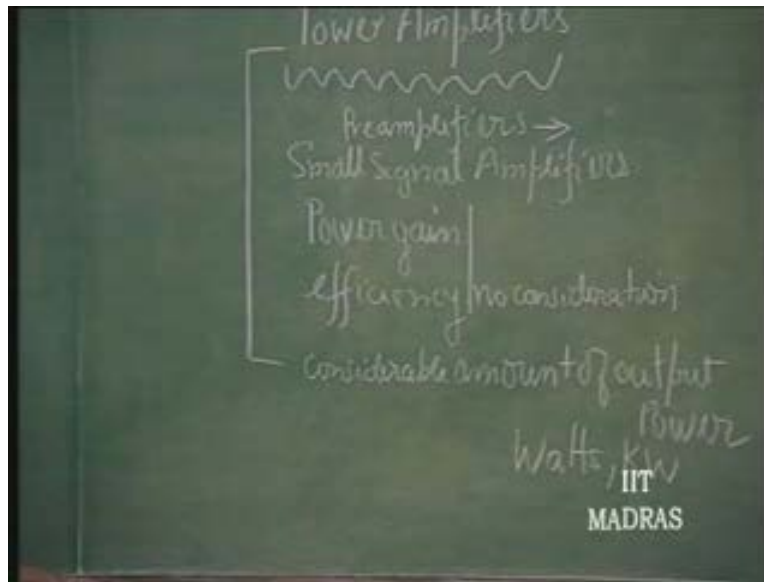 Power Amplifiers
Preamplifiers →
Small Signal Amplifiers
Power gain
efficiency | no consideration
Considerable amount of output
Power
Watts, KW
IIT
MADRAS